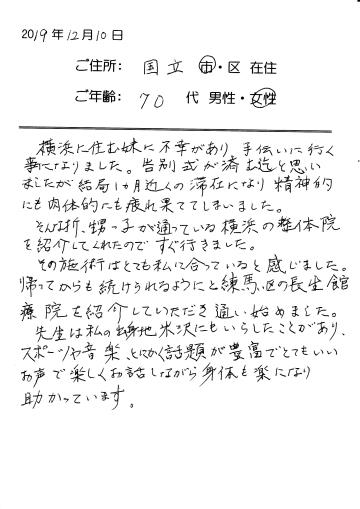 2019年12月10日
ご住所: 国立 市・区 在住
ご年齢: 70 代 男性・女性
横浜に住む妹に不幸があり、手伝いに行く
事になりました。告別式が済む迄と思い
ましたが結局1カ月近くの滞在になり精神的
にも肉体的にも疲れ果ててしまいました。
そんな折、甥っ子が通っている横浜の整体院
を紹介してくれたのですぐ行きました。
その施術はとても私に合っていると感じました。
帰ってからも続けられるようにと練馬区の長生館
療院を紹介していただき通い始めました。
先生は私の出身地、米沢にもいらしたことがあり、
スポーツや音楽、とにかく話題が豊富でとてもいい
お声で楽しくお話しながら身体も楽になり
助かっています。